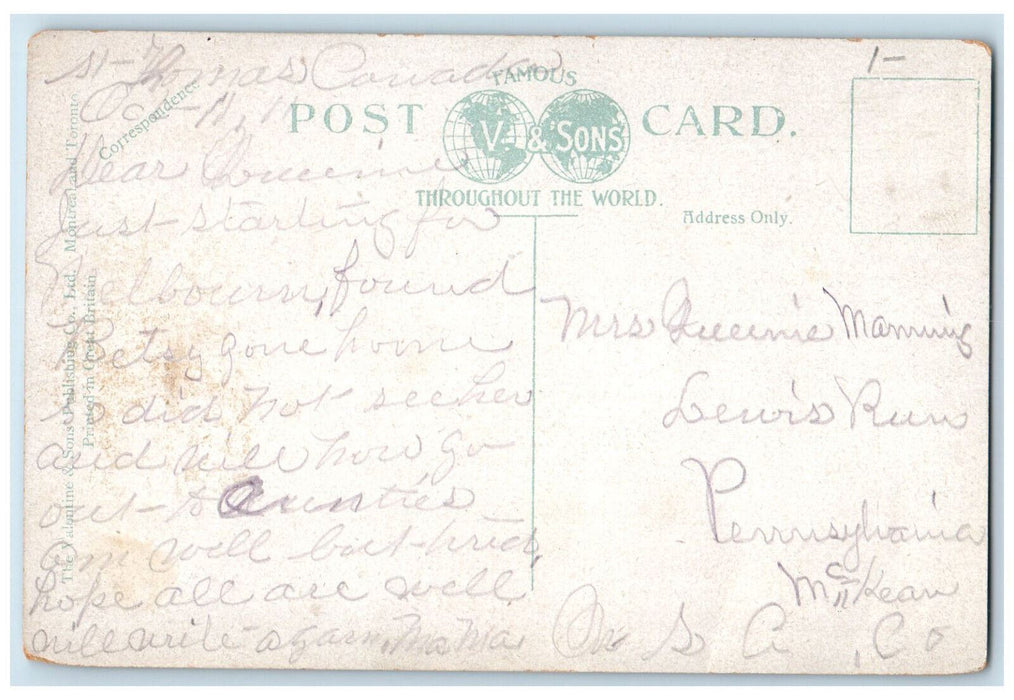 St-Thomas Canada
Oct-11, 11
Dear Queenie
Just-starting for
Melbourn, found
Betsy gone home
so did not see her
and will now go
out-to Aunties
am well but-tired,
hope all are well
will write-again, Ma Ma
Correspondence
The Valentine & Sons' Publishing Co., Ltd. Montreal and Toronto
Printed in Great Britain.
FAMOUS
POST V. & SONS CARD.
THROUGHOUT THE WORLD.
Address Only.
1-
Mrs Queenie Manning
Lewis Run
Pennsylvania
McKean
Co
S A